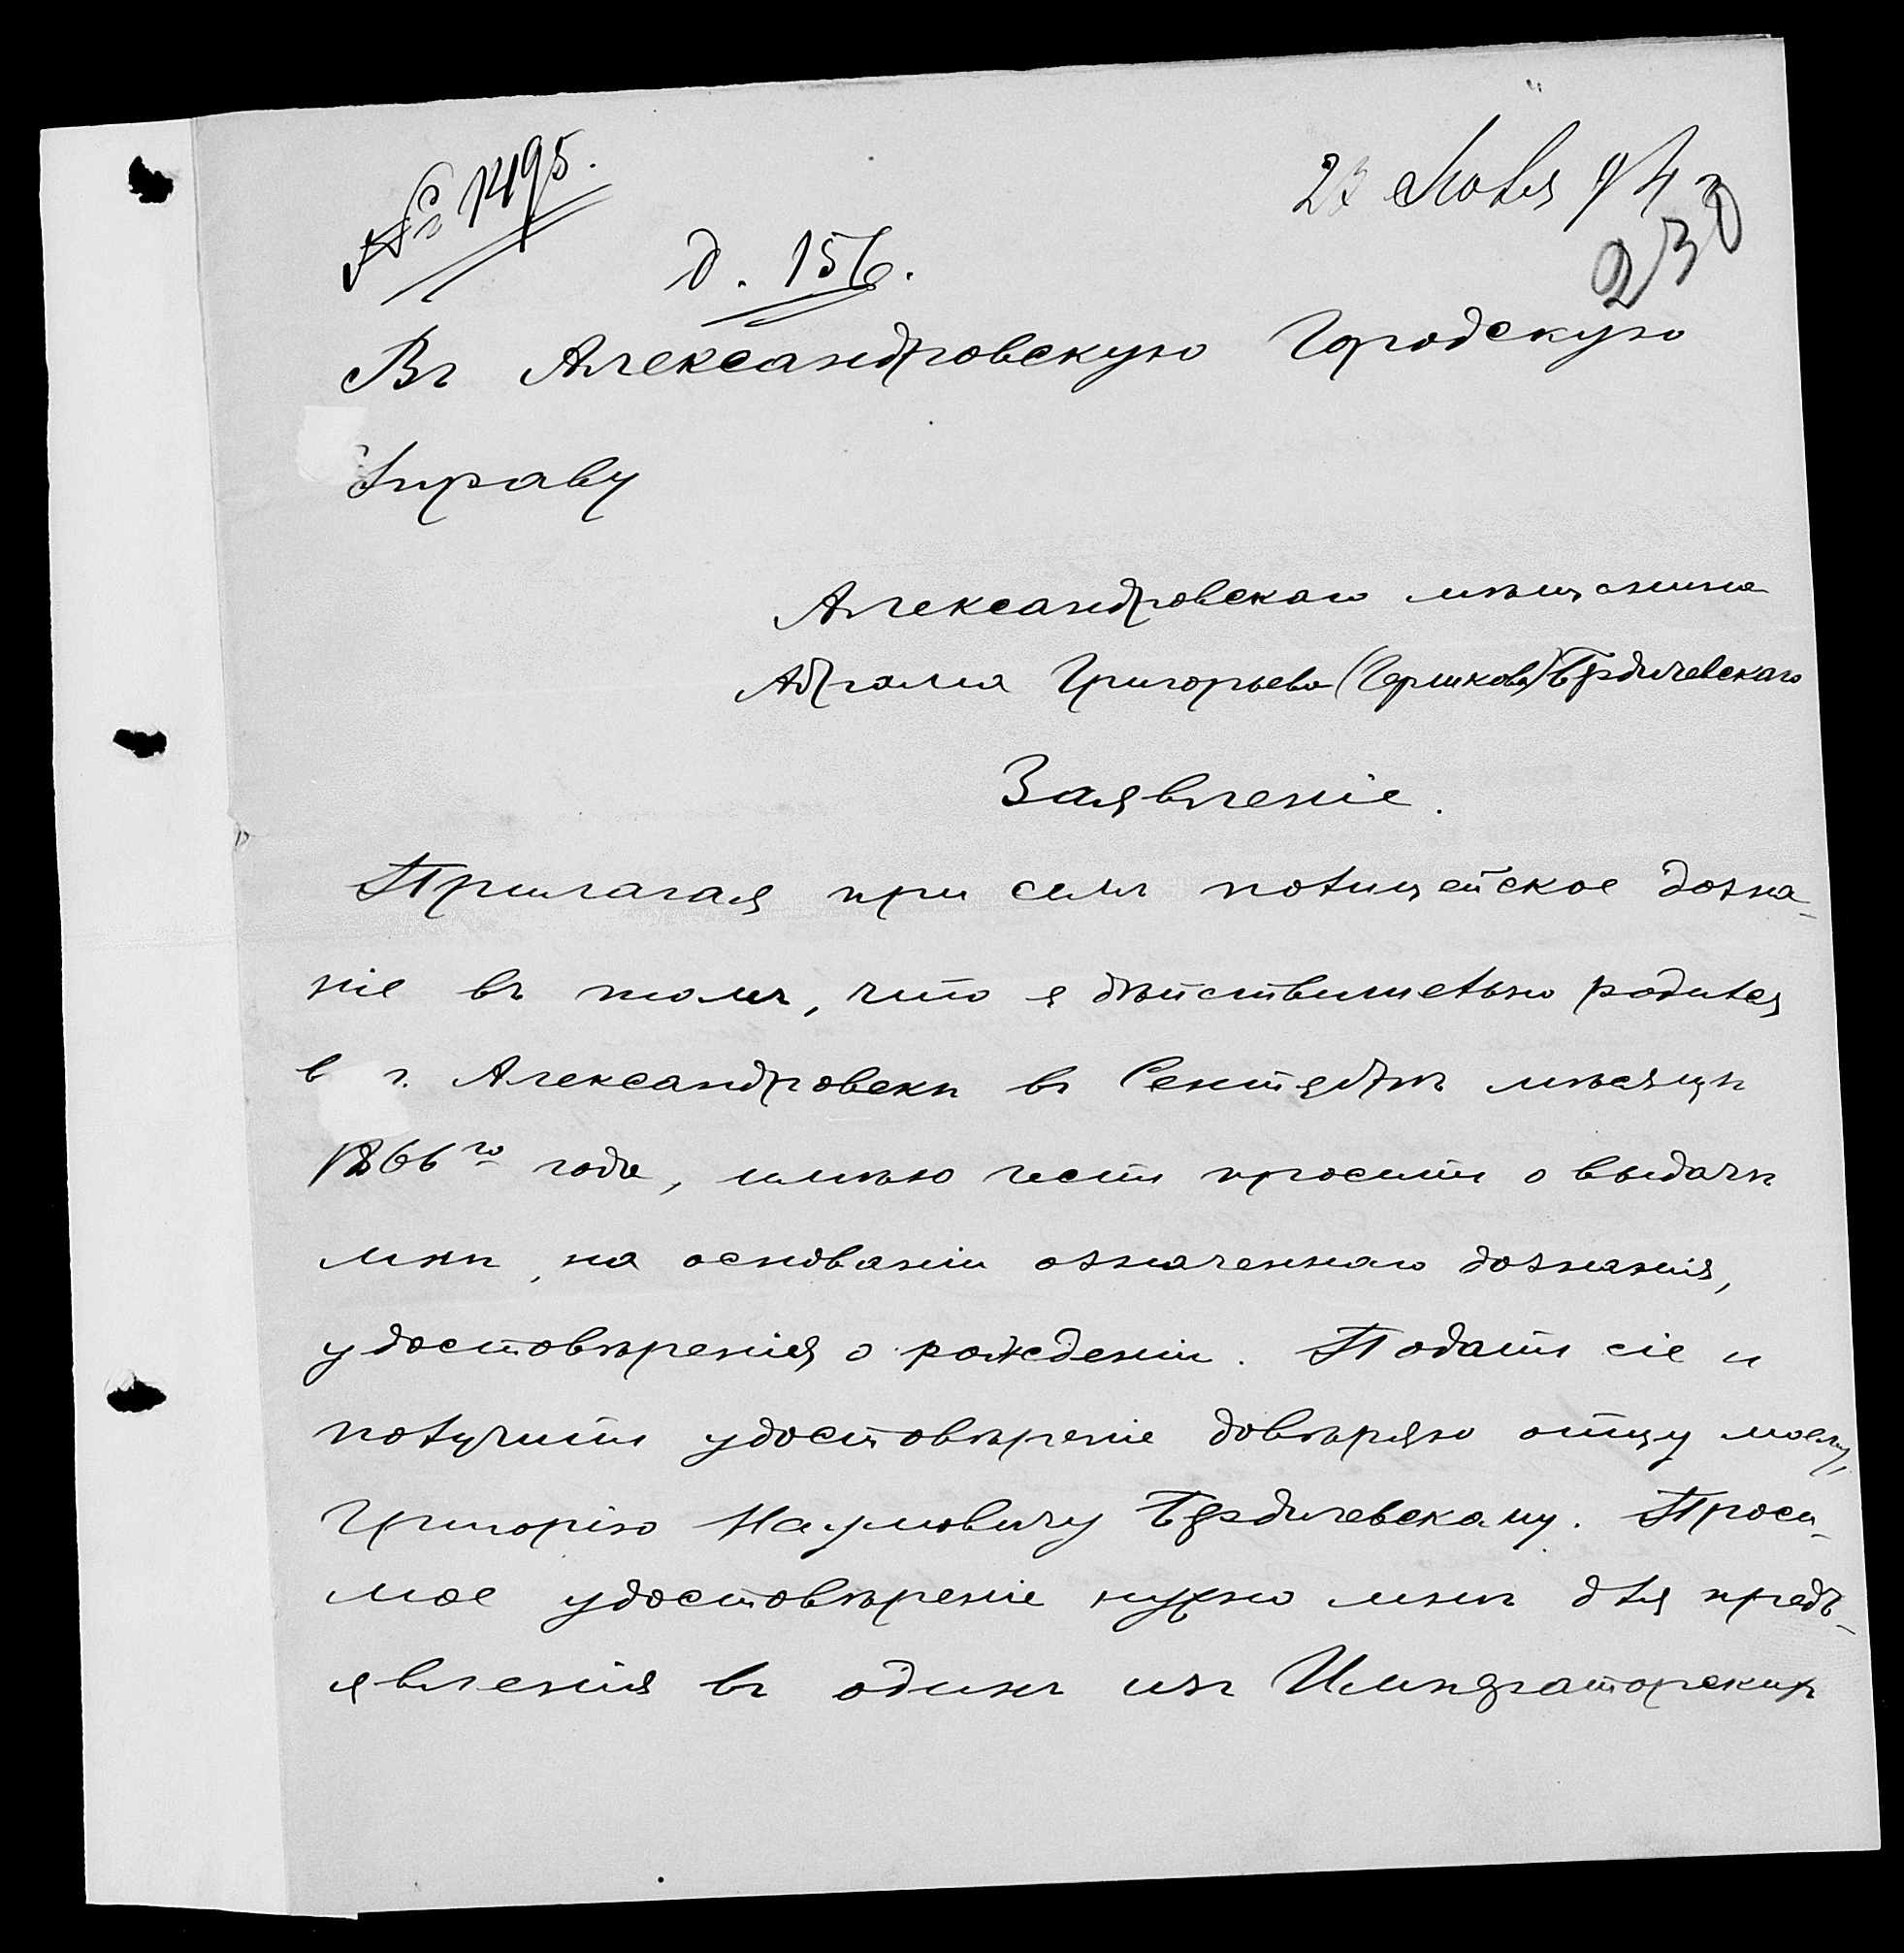 № 1495.
23 Июля 94 г
230
д. 156.
Въ Александровскую Городскую
Управу
Александровскаго мѣщанина
Абрама Григорьева (Гершкова) Бердичевскаго
Заявленіе.
Прилагая при семъ полицейское дозна-
ніе въ томъ, что я дѣйствительно родился
в г. Александровскѣ въ Сентябрѣ мѣсяцѣ
1866го года, имѣю честь просить о выдачѣ
мнѣ, на основаніи означеннаго дознанія,
удостовѣренія о рожденіи. Подать сіе и
получить удостовѣреніе довѣряю отцу моему,
Григорію Наумовичу Бердичевскому. Проси-
мое удостовѣреніе нужно мнѣ для предъ-
явленія въ одинъ изъ Императорских